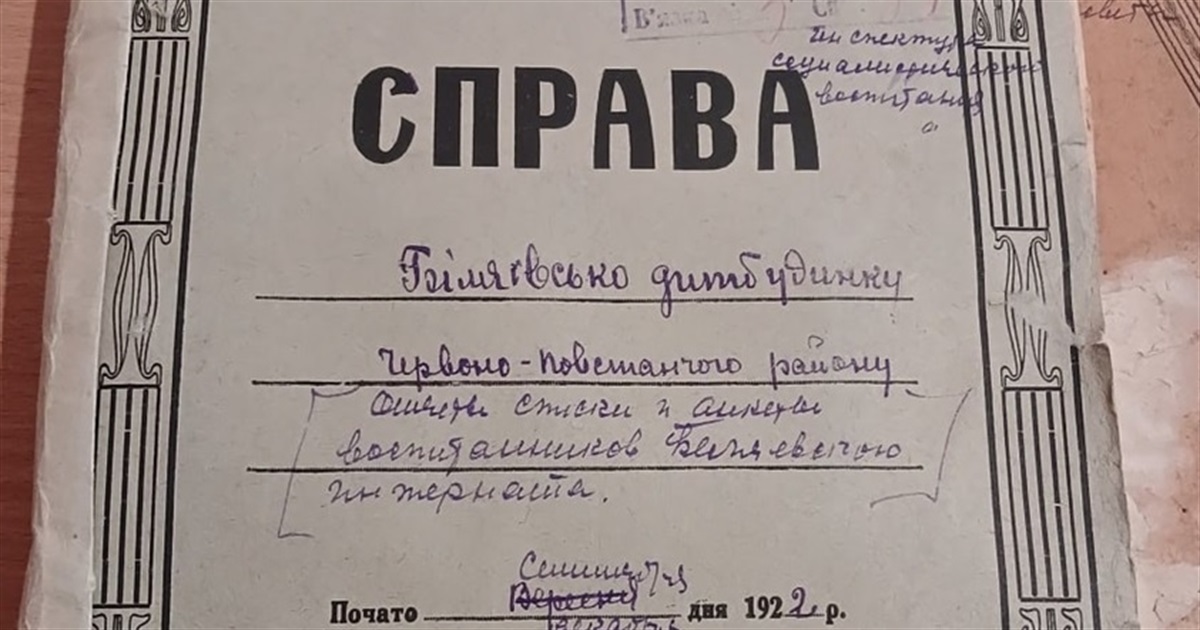 В'язка
инспектура
социалистической
воспитания
СПРАВА
Білягвсько дитбудинку
Червоно-Повстанчого району
списки и анкеты
воспитанников Беляевского
интерната.
Вересня
Почато дня 1922 р.